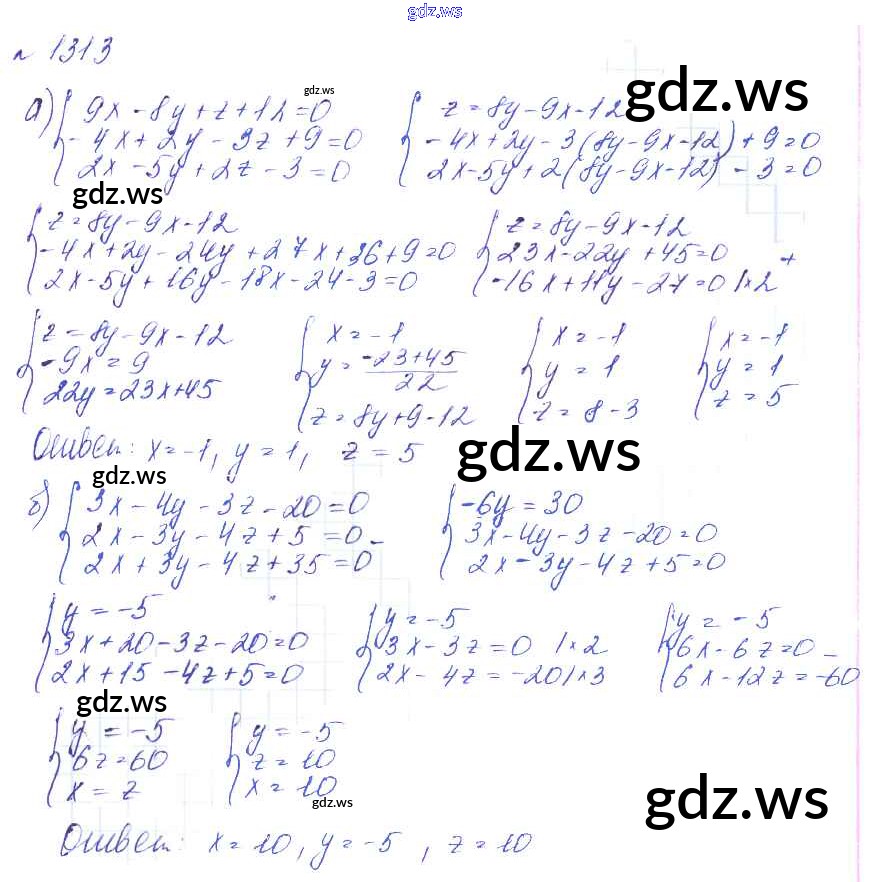 gdz.ws
№ 1313
а) { 9x - 8y + z + 12 = 0
-4x + 2y - 3z + 9 = 0
2x - 5y + 2z - 3 = 0
gdz.ws
{ z = 8y - 9x - 12
-4x + 2y - 3(8y - 9x - 12) + 9 = 0
2x - 5y + 2(8y - 9x - 12) - 3 = 0
gdz.ws
gdz.ws
{ z = 8y - 9x - 12
-4x + 2y - 24y + 27x + 36 + 9 = 0
2x - 5y + 16y - 18x - 24 - 3 = 0
{ z = 8y - 9x - 12
23x - 22y + 45 = 0 +
-16x + 11y - 27 = 0 |×2
{ z = 8y - 9x - 12
-9x = 9
22y = 23x + 45
{ x = -1
y = (-23+45)/22
z = 8y + 9 - 12
{ x = -1
y = 1
z = 8 - 3
{ x = -1
y = 1
z = 5
Ответ: x = -1, y = 1, z = 5
gdz.ws
gdz.ws
б) { 3x - 4y - 3z - 20 = 0
2x - 3y - 4z + 5 = 0 -
2x + 3y - 4z + 35 = 0
{ -6y = 30
3x - 4y - 3z - 20 = 0
2x - 3y - 4z + 5 = 0
{ y = -5
3x + 20 - 3z - 20 = 0
2x + 15 - 4z + 5 = 0
{ y = -5
3x - 3z = 0 |×2
2x - 4z = -20 |×3
{ y = -5
6x - 6z = 0 -
6x - 12z = -60
gdz.ws
{ y = -5
6z = 60
x = z
{ y = -5
z = 10
x = 10
gdz.ws
gdz.ws
Ответ: x = 10, y = -5, z = 10